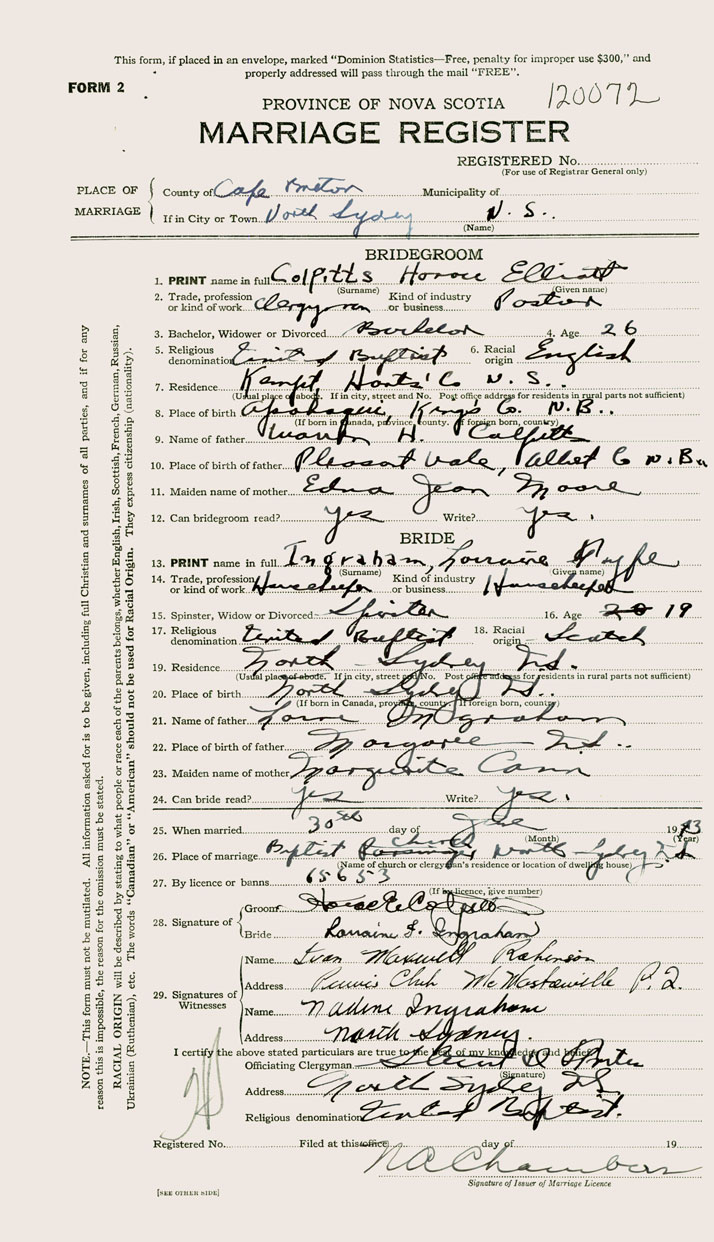 This form, if placed in an envelope, marked "Dominion Statistics—Free, penalty for improper use $300," and
properly addressed will pass through the mail "FREE".
FORM 2
PROVINCE OF NOVA SCOTIA 120072
MARRIAGE REGISTER
REGISTERED No.
(For use of Registrar General only)
PLACE OF MARRIAGE
County of Cape Breton Municipality of
If in City or Town North Sydney N. S..
(Name)
BRIDEGROOM
1. PRINT name in full Colpitts Horace Elliott
(Surname) (Given name)
2. Trade, profession or kind of work Clergyman Kind of industry or business Pastor
3. Bachelor, Widower or Divorced Bachelor 4. Age 26
5. Religious denomination United Baptist 6. Racial origin English
7. Residence Kempt, Hants' Co N. S..
(Usual place of abode. If in city, street and No. Post office address for residents in rural parts not sufficient)
8. Place of birth Apohaqui, Kings Co. N.B..
(If born in Canada, province, county. If foreign born, country)
9. Name of father Warren H. Colpitts
10. Place of birth of father Pleasant Vale, Albert Co N.B.
11. Maiden name of mother Edna Jean Moore
12. Can bridegroom read? yes Write? yes.
BRIDE
13. PRINT name in full Ingraham, Lorraine
(Surname) (Given name)
14. Trade, profession or kind of work Housekeeper Kind of industry or business Housekeeper
15. Spinster, Widow or Divorced Spinster 16. Age 20 19
17. Religious denomination United Baptist 18. Racial origin Scotch
19. Residence North Sydney N.S.
(Usual place of abode. If in city, street and No. Post office address for residents in rural parts not sufficient)
20. Place of birth North Sydney N.S..
(If born in Canada, province, county. If foreign born, country)
21. Name of father Lorne Ingraham
22. Place of birth of father Margaree N.S..
23. Maiden name of mother Marguerite Cann
24. Can bride read? yes Write? yes.
25. When married 30th day of June 1943
(Month) (Year)
26. Place of marriage Baptist Parsonage Church North Sydney N.S
(Name of church or clergyman's residence or location of dwelling house)
27. By licence or banns 65653
(If by licence, give number)
28. Signature of
Groom Horace E Colpitts
Bride Lorraine F. Ingraham
29. Signatures of Witnesses
Name Ivan Maxwell Robinson
Address Club McMasterville P.Q.
Name Nadine Ingraham
Address North Sydney.
I certify the above stated particulars are true to the best of my knowledge and belief.
Officiating Clergyman
(Signature)
Address North Sydney N.S
Religious denomination United Baptist.
Registered No. Filed at this office day of 19
N A Chambers
Signature of Issuer of Marriage Licence
[SEE OTHER SIDE]
NOTE.—This form must not be mutilated. All information asked for is to be given, including full Christian and surnames of all parties, and if for any
reason this is impossible, the reason for the omission must be stated.
RACIAL ORIGIN will be described by stating to what people or race each of the parents belongs, whether English, Irish, Scottish, French, German, Russian,
Ukrainian (Ruthenian), etc. The words "Canadian" or "American" should not be used for Racial Origin. They express citizenship (nationality).